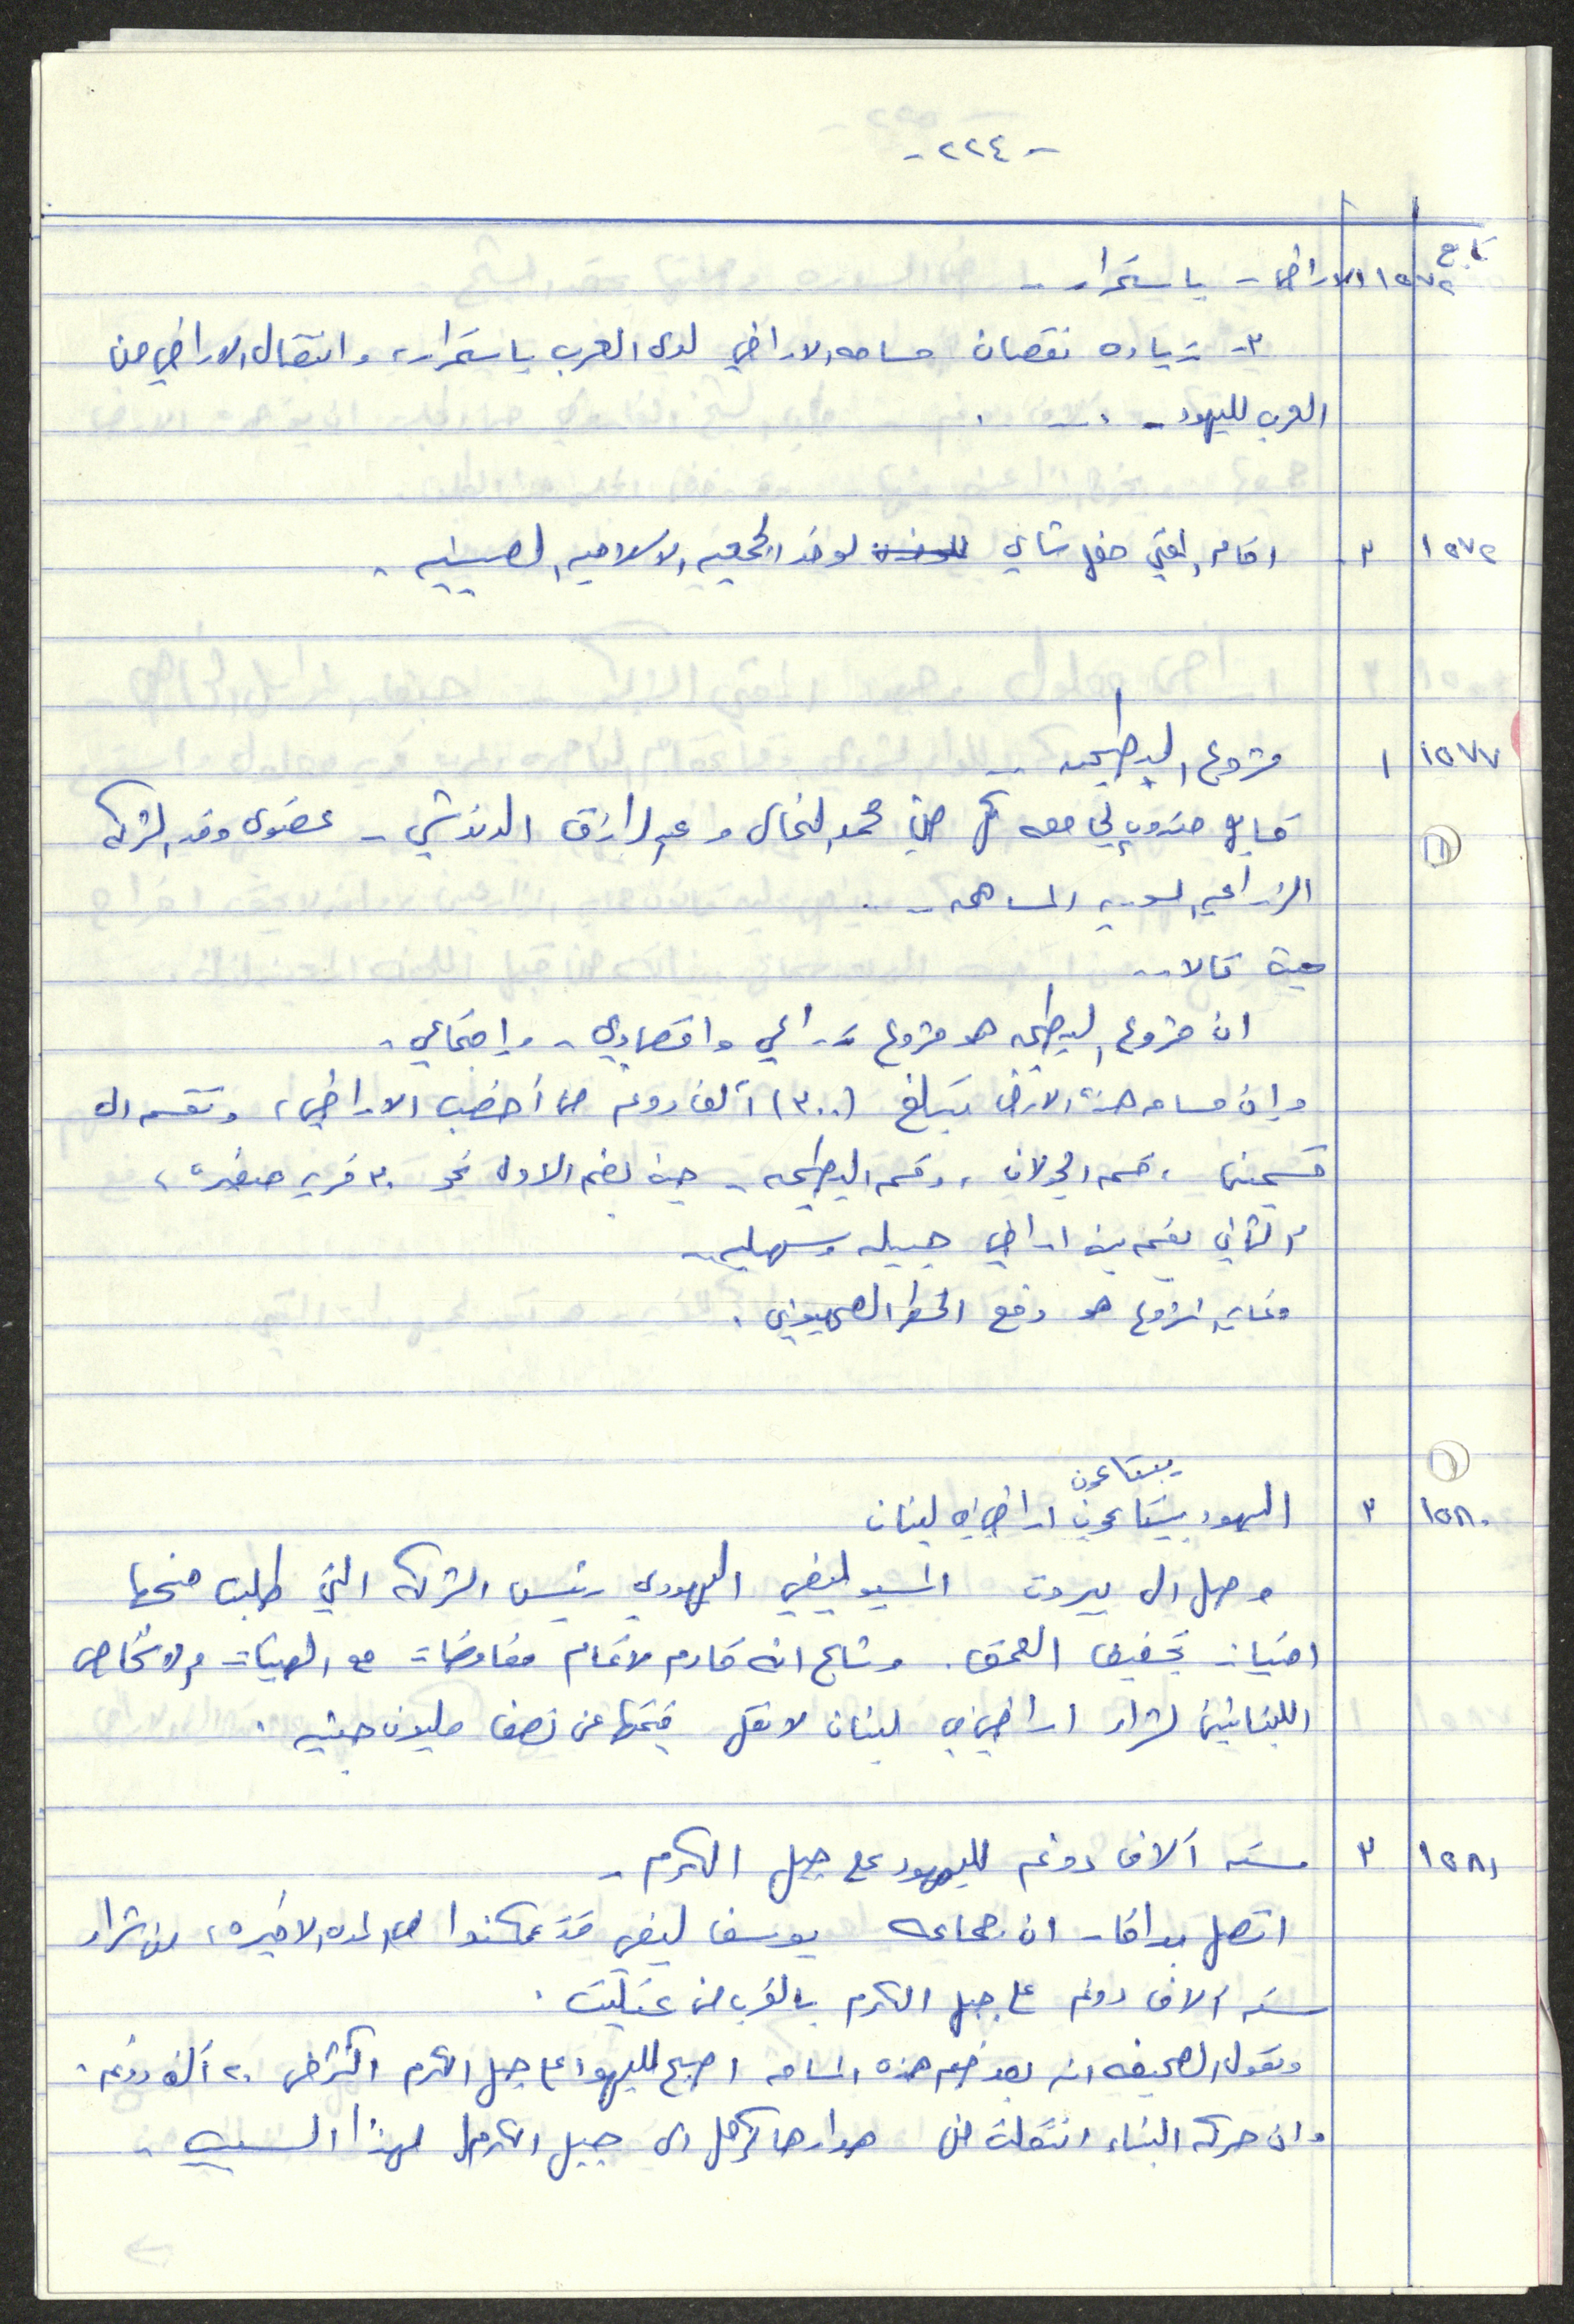 - ٢٢٤ -
تابع
١٥٧٢ الاراضي - باستمرار -
٣- زياده نقصان مساحه الاراضي لدى العرب باستمرار، وانتقال الاراضي من
العرب لليهود - .
١٥٧٢ ٣ اقام المفتي حفل شاي لوفد الجمعيه الاسلاميه الصينيه .
١٥٧٧ ١ مشروع البطيحه -
قابل مندوب لي معه كل من محمد النحال وعبد الرازق الدندشي - عضوى وفد الشركه
الزراعيه السوريه المساهمه - .
حيث قالا -
ان مشروع البطيحه هو مشروع زراعي واقتصادي - واجتماعي .
وإن مساحه هذه الارض تبلغ (٣٠٠) ألف دونم من أخصب الاراضي، وتقسم الى
قسمين ، قسم الجولان ، وقسم البطيحه - حيث يضم الاول نحو ٣٠ قريه صغيره ،
والثاني يضم اراضي جبيله وسهليه -
وغايه المشروع هو دفع الخطر الصهيوني .
يبتاعون
١٥٨٠ ٣ اليهود يبتاعون اراضي في لبنان
وصل الى بيروت المسيو ليفي اليهودي رئيس الشركه التي طلبت منحها
امتياز تجفيف العمق . وشاع انه قادم لاتمام مفاوضات مع الهيئات والاشخاص
اللبنانيين لشراء اراضي في لبنان لا تقل قيمتها عن نصف مليون جنيه .
١٥٨١ ٣ سته آلاف دونم لليهود على جبل الكرم -
اتصل بدافار ان جماعه يوسف ليفي قد تمكنوا في المده الاخيره ، من شراء
سته آلاف دونم على جبل الكرم بالقرب من عتليت .
وتقول الصحيفه انه بعد ضم هذه المساحه اصبح لليهود على جبل الكرم اكثر من ٢٠ ألف دونم .
وان حركه البناء انتقلت من هدار هاكرمل الى جبل الكرمل لهذا السبب .